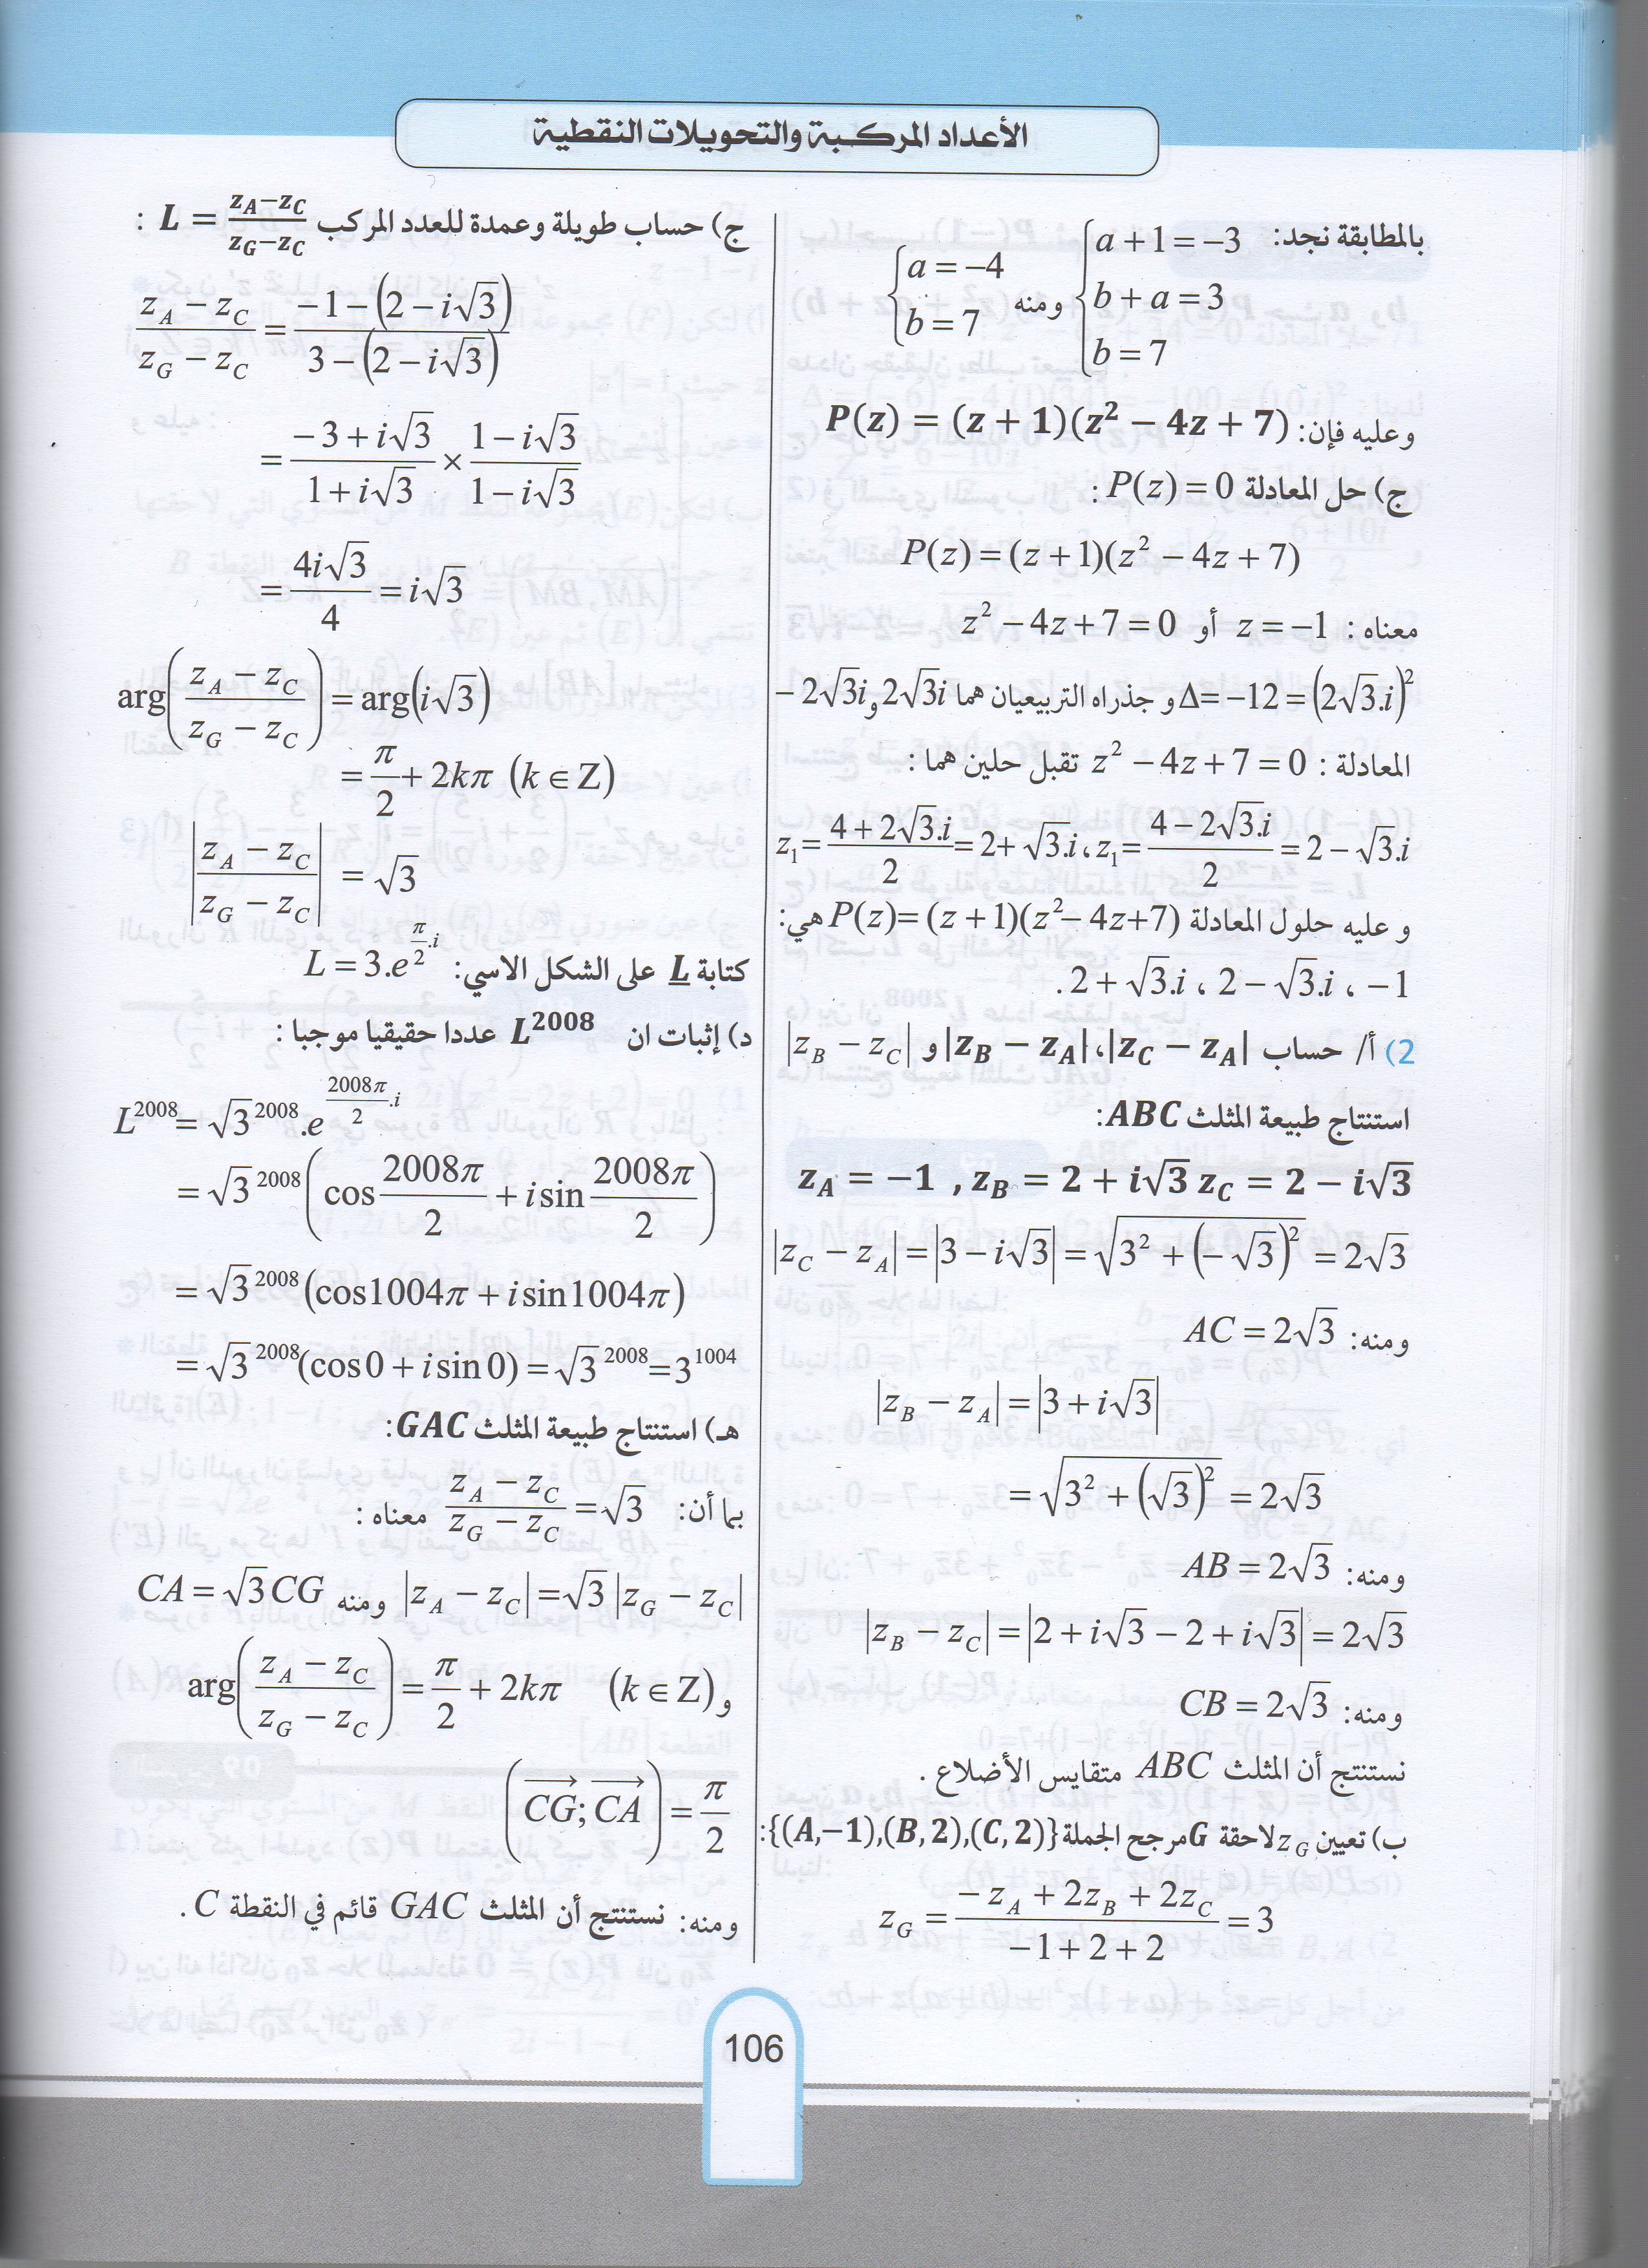 الأعداد المركبة والتحويلات النقطية
بالمطابقة نجد: {a + 1 = −3 ; b + a = 3 ; b = 7 ومنه {a = −4 ; b = 7
وعليه فإن: P(z) = (z + 1)(z² − 4z + 7)
ج) حل المعادلة P(z) = 0 :
P(z) = (z + 1)(z² − 4z + 7)
معناه : z = −1 أو z² − 4z + 7 = 0
Δ= −12 = (2√3.i)² و جذراه التربيعيان هما 2√3i و −2√3i
المعادلة : z² − 4z + 7 = 0 تقبل حلين هما :
z₁= (4 + 2√3.i)/2 = 2+ √3.i ، z₁= (4 − 2√3.i)/2 = 2 − √3.i
و عليه حلول المعادلة P(z)= (z + 1)(z²− 4z+7) هي:
−1 ، 2 − √3.i ، 2 + √3.i .
2) أ/ حساب |z_C − z_A|،|z_B − z_A| و |z_B − z_C|
استنتاج طبيعة المثلث ABC:
z_A = −1 , z_B = 2 + i√3 z_C = 2 − i√3
|z_C − z_A| = |3 − i√3| = √(3² + (−√3)²) = 2√3
ومنه: AC = 2√3
|z_B − z_A| = |3 + i√3|
= √(3² + (√3)²) = 2√3
ومنه: AB = 2√3
|z_B − z_C| = |2 + i√3 − 2 + i√3| = 2√3
ومنه: CB = 2√3
نستنتج أن المثلث ABC متقايس الأضلاع .
ب) تعيين z_G لاحقة G مرجح الجملة {(A,−1),(B,2),(C,2)}:
z_G = (−z_A + 2z_B + 2z_C)/(−1 + 2 + 2) = 3
ج) حساب طويلة وعمدة للعدد المركب L = (z_A−z_C)/(z_G−z_C) :
(z_A − z_C)/(z_G − z_C) = (−1 − (2 − i√3))/(3 − (2 − i√3))
= (−3 + i√3)/(1 + i√3) × (1 − i√3)/(1 − i√3)
= 4i√3/4 = i√3
arg((z_A − z_C)/(z_G − z_C)) = arg(i√3)
= π/2 + 2kπ (k ∈ Z)
|(z_A − z_C)/(z_G − z_C)| = √3
كتابة L على الشكل الاسي: L = 3.e^(π/2 .i)
د) إثبات ان L²⁰⁰⁸ عددا حقيقيا موجبا :
L²⁰⁰⁸= √3²⁰⁰⁸.e^(2008π/2 .i)
= √3²⁰⁰⁸(cos 2008π/2 + i sin 2008π/2)
= √3²⁰⁰⁸(cos1004π + i sin1004π)
= √3²⁰⁰⁸(cos0 + i sin0) = √3²⁰⁰⁸=3¹⁰⁰⁴
هـ) استنتاج طبيعة المثلث GAC:
بما أن: (z_A − z_C)/(z_G − z_C) = √3 معناه :
|z_A − z_C| = √3 |z_G − z_C| ومنه CA = √3CG
و arg((z_A − z_C)/(z_G − z_C)) = π/2 + 2kπ (k ∈ Z)
(CG→; CA→) = π/2
ومنه: نستنتج أن المثلث GAC قائم في النقطة C .
106